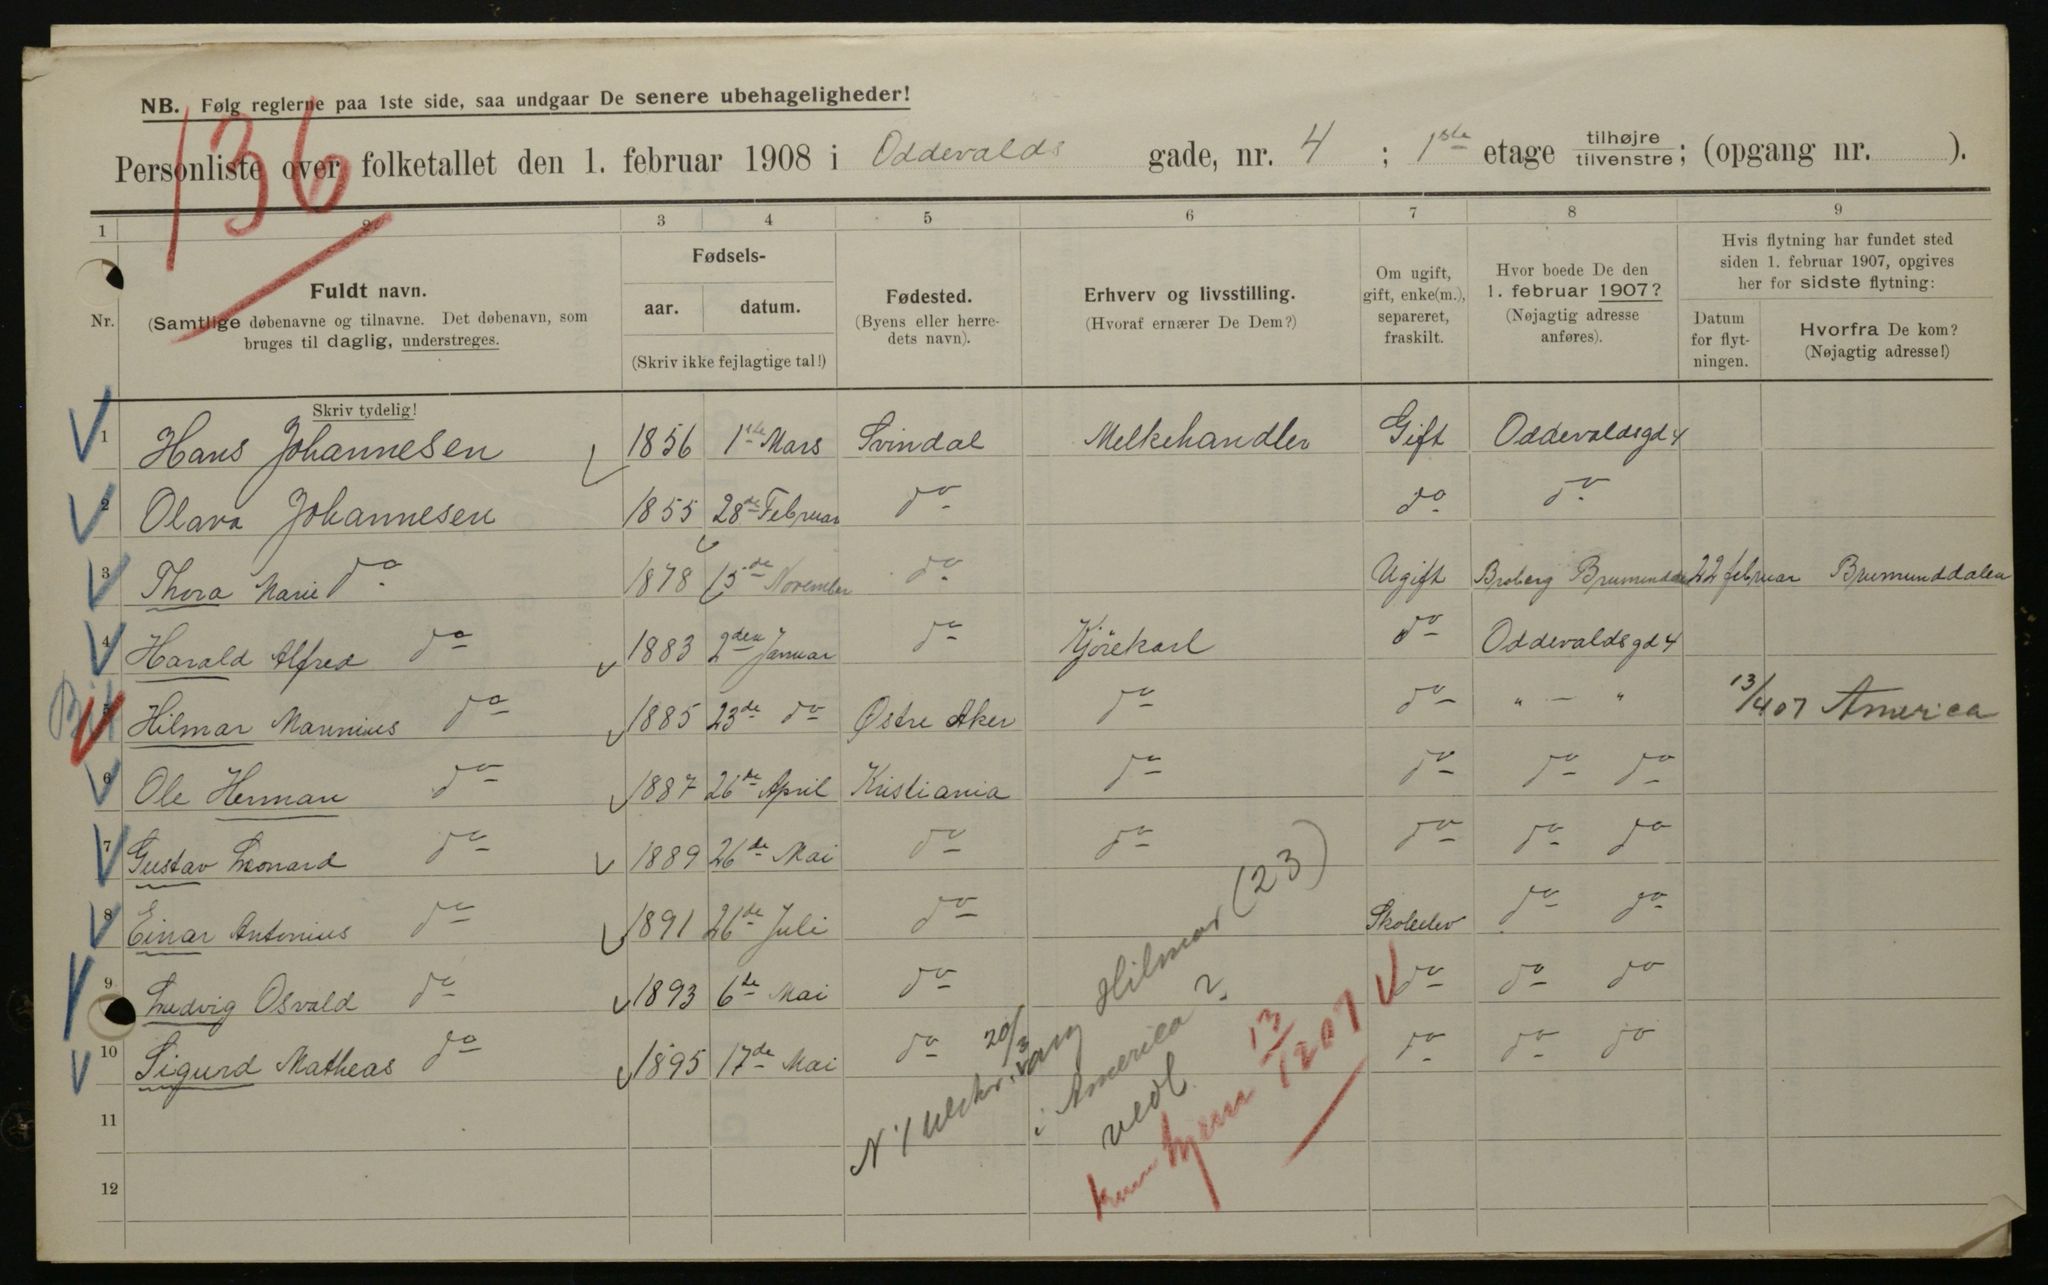 NB. Følg reglerne paa 1ste side, saa undgaar De senere ubehageligheder!
136
Personliste over folketallet den 1. februar 1908 i Oddevalds gade, nr. 4 ; 1ste etage tilhøjre tilvenstre ; (opgang nr. ).
1 2 3 4 5 6 7 8 9
Nr.
Fuldt navn.
(Samtlige døbenavne og tilnavne. Det døbenavn, som
bruges til daglig, understreges.
Fødsels-
aar. datum.
(Skriv ikke fejlagtige tal!)
Fødested.
(Byens eller herre-
dets navn).
Erhverv og livsstilling.
(Hvoraf ernærer De Dem?)
Om ugift,
gift, enke(m.),
separeret,
fraskilt.
Hvor boede De den
1. februar 1907?
(Nøjagtig adresse
anføres).
Hvis flytning har fundet sted
siden 1. februar 1907, opgives
her for sidste flytning:
Datum
for flyt-
ningen.
Hvorfra De kom?
(Nøjagtig adresse!)
Skriv tydelig!
1 Hans Johannesen 1856 1ste Mars Svindal Melkehandler Gift Oddevaldsgd 4
2 Olava Johannesen 1855 28de Februar do do do
3 Thora Marie do 1878 15de November do Ugift Broberg Brumundda 22 februar Brumunddalen
4 Harald Alfred do 1883 2den Januar do Kjörekarl do Oddevaldsgd 4
5 Hilmar Marinius do 1885 23de do Østre Aker do do " — " 13/4 07 America
6 Ole Herman do 1887 26de April Kristiania do do do do
7 Gustav Leonard do 1889 26de Mai do do do do do
8 Einar Antonius do 1891 26de Juli do Skoleelev do do
9 Ludvig Osvald do 1893 6te Mai do do do do
10 Sigurd Matheas do 1895 17de Mai do do do do
11
12
20/3
Hilmar (23)
i America ?
vedl.
hjem 13/1207